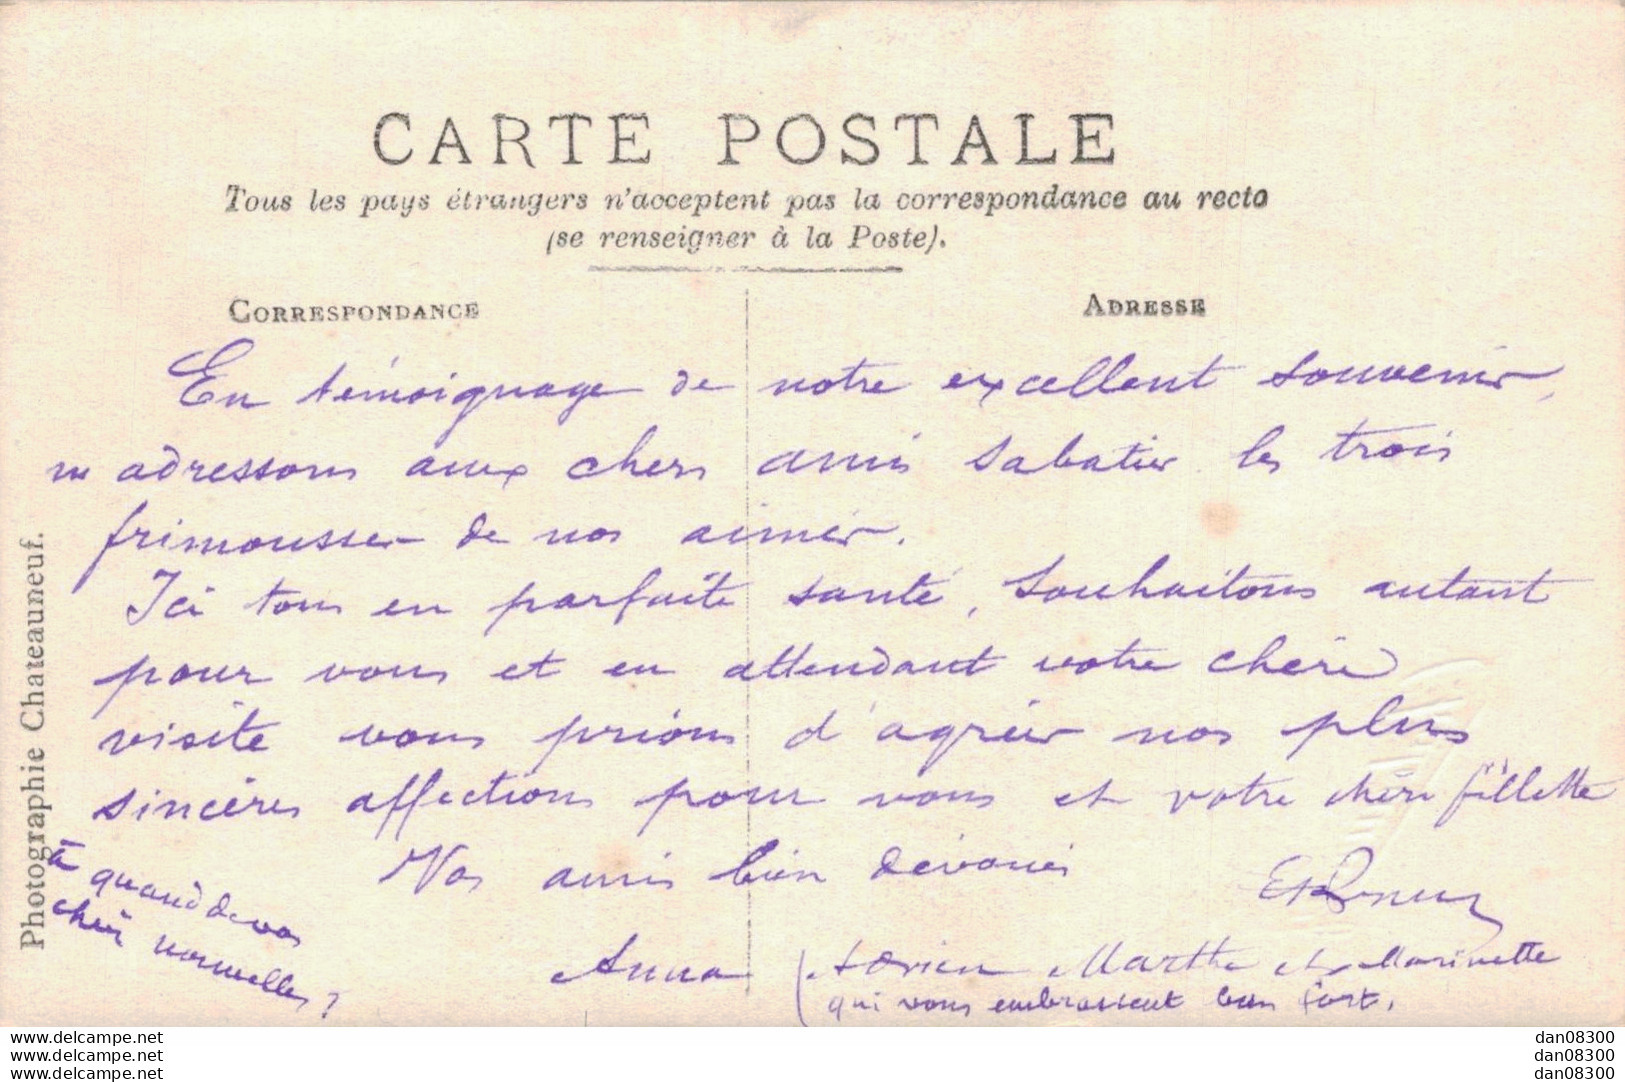 CARTE POSTALE
Tous les pays étrangers n'acceptent pas la correspondance au recto
(se renseigner à la Poste).
CORRESPONDANCE
ADRESSE
En témoignage de notre excellent souvenir,
ns adressons aux chers amis Sabatier les trois
frimousses de nos aimés.
Ici tous en parfaite santé, souhaitons autant
pour vous et en attendant votre chère
visite vous prions d'agréer nos plus
sincères affections pour vous et votre chère fillette
Nos amis bien dévoués
à quand de vos
chères nouvelles ?
Anna
Adrien Marthe et Marinette
qui vous embrassent bien fort.
Photographie Chateauneuf.
www.delcampe.net
www.delcampe.net
www.delcampe.net
dan08300
dan08300
dan08300